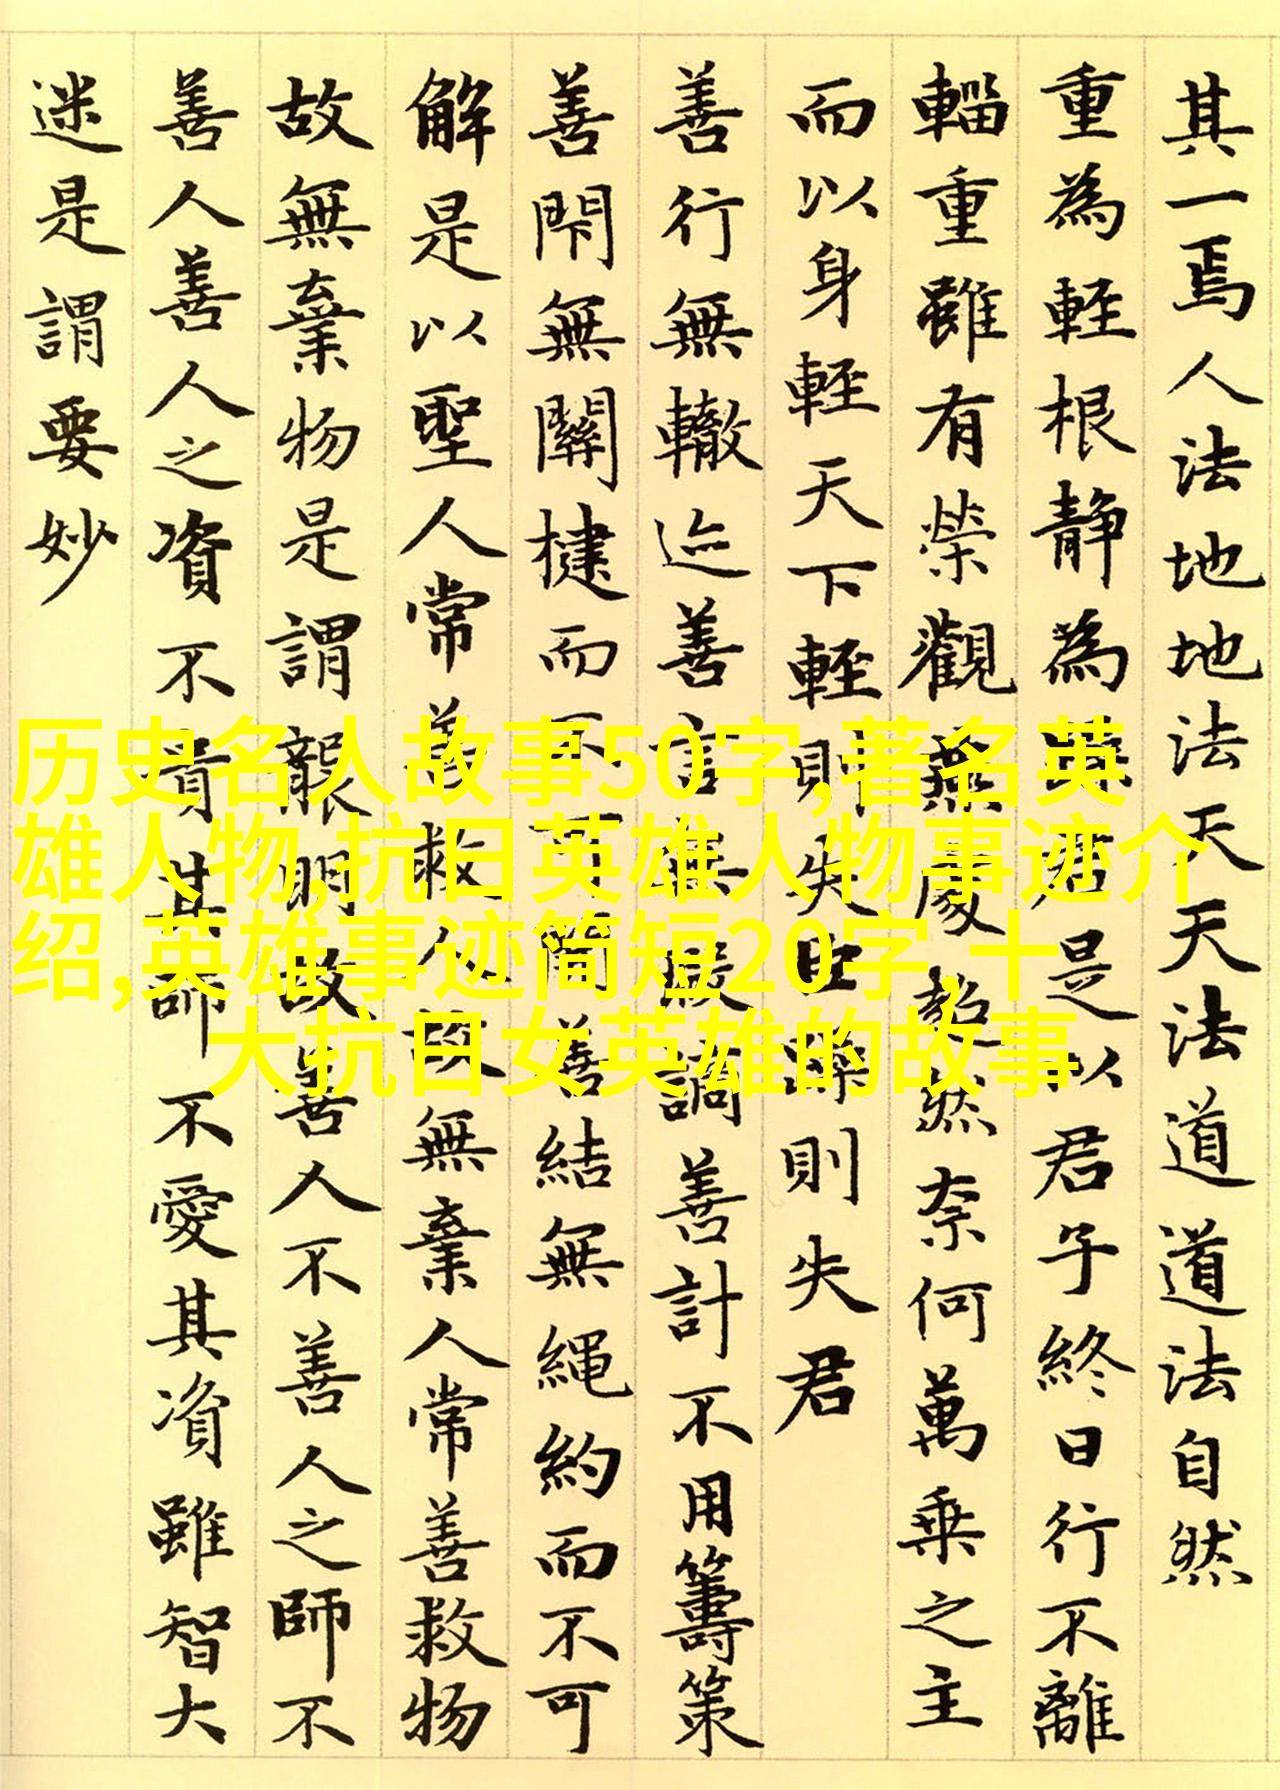 其一焉人法地地法天天法道道法自然
重為輕根靜為躁君是以君子終日行不離
輜重雖有榮觀燕處超然奈何萬乘之主
而以身輕天下輕則失臣躁則失君
善行無轍迹善言無瑕謫善計不用籌策
善閇無關楗而不可開善結無繩約而不可
解是以聖人常善救人故無棄人常善救物
故無棄物是謂襲明故善人不善人之師不
善人善人之資不貴其師不愛其資雖智大
迷是謂要妙
历史名人故事50字,著名英
雄人物,抗日英雄人物事迹介
绍,英雄事迹简短20字,十
大抗日女英雄的故事